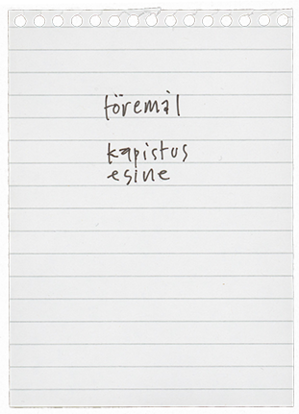 föremål
kapistus
esine